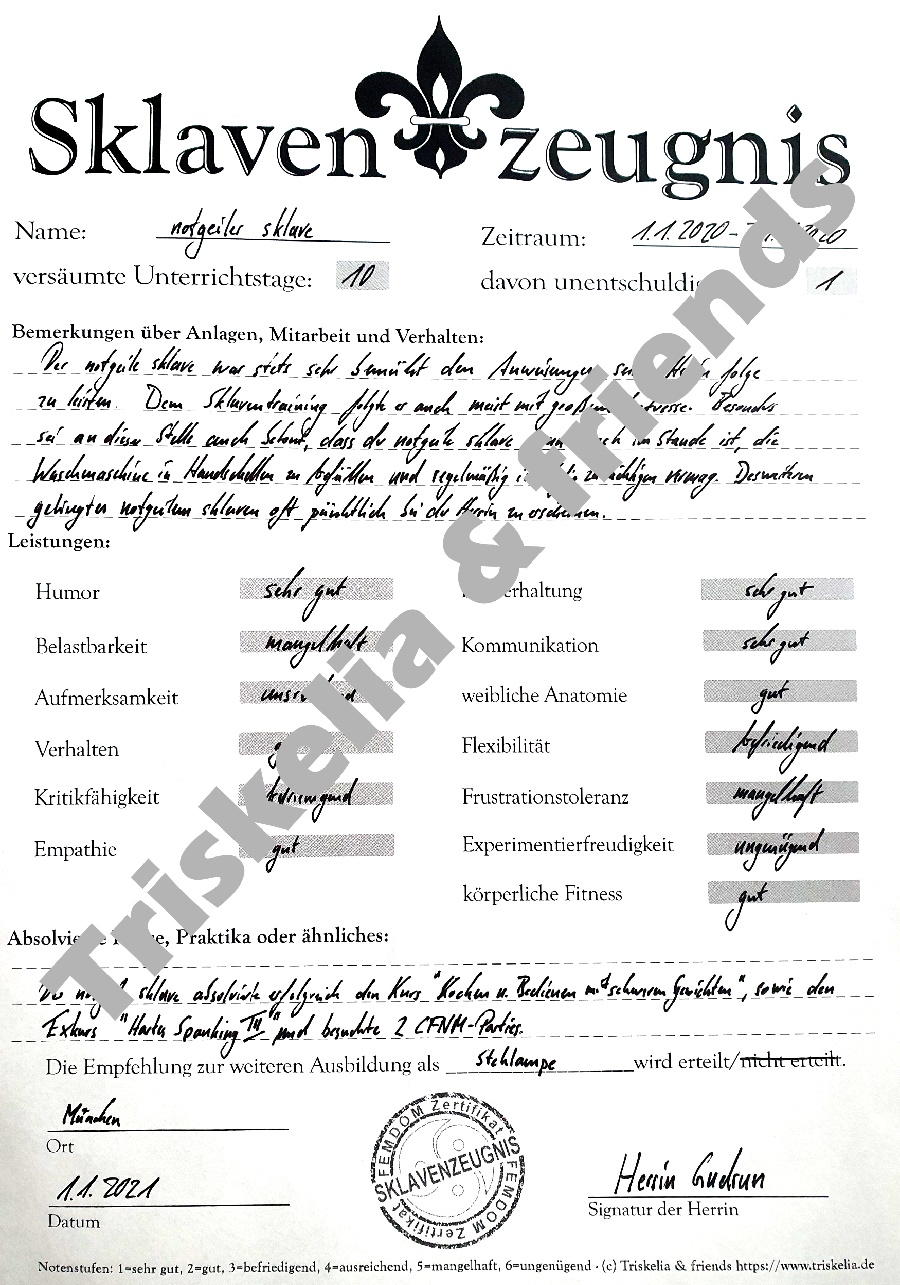 Sklavenzeugnis
Name: notgeiler sklave
Zeitraum: 1.1.2020 -
versäumte Unterrichtstage: 10
davon unentschuldi 1
Bemerkungen über Anlagen, Mitarbeit und Verhalten:
Der notgeile sklave war stets sehr bemüht den Anweisungen Herrin folge
zu leisten. Dem Sklaventraining folgte er auch meist mit großem Besonders
sei an dieser Stelle auch betont, dass der notgeile sklave im Stande ist, die
Waschmaschine in Handschellen zu befüllen und regelmäßig zu nächtigen vermag. Desweiteren
gelingt es notgeilem sklaven oft pünktlich bei der Herrin zu erscheinen.
Leistungen:
Humor sehr gut
erhaltung sehr gut
Belastbarkeit mangelhaft
Kommunikation sehr gut
Aufmerksamkeit
weibliche Anatomie gut
Verhalten
Flexibilität befriedigend
Kritikfähigkeit
Frustrationstoleranz mangelhaft
Empathie gut
Experimentierfreudigkeit ungenügend
körperliche Fitness gut
Absolvie e, Praktika oder ähnliches:
sklave absolvierte erfolgreich den Kurs "Kochen u. Bedienen mit schweren Gewichten", sowie den
Exkurs "Hartes Spanking III" und besuchte 2 CFNM-Parties.
Die Empfehlung zur weiteren Ausbildung als Stehlampe wird erteilt/nicht erteilt.
München
Ort
1.1.2021
Datum
FEMDOM Zertifikat
SKLAVENZEUGNIS
FEMDOM Zertifikat
Herrin Gudrun
Signatur der Herrin
Notenstufen: 1=sehr gut, 2=gut, 3=befriedigend, 4=ausreichend, 5=mangelhaft, 6=ungenügend · (c) Triskelia & friends https://www.triskelia.de
Triskelia & friends